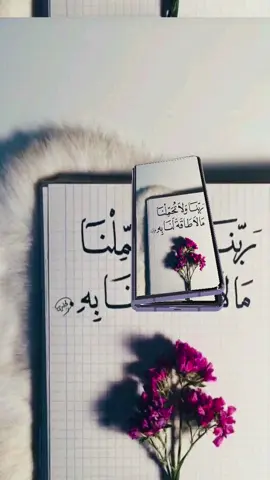 رَبَّنَا وَلَا تُحَمِّلْنَا
مَا لَا طَاقَةَ لَنَا بِهِ
رَبَّنَا مِّلْنَا
مَا لَا نَا بِهِ